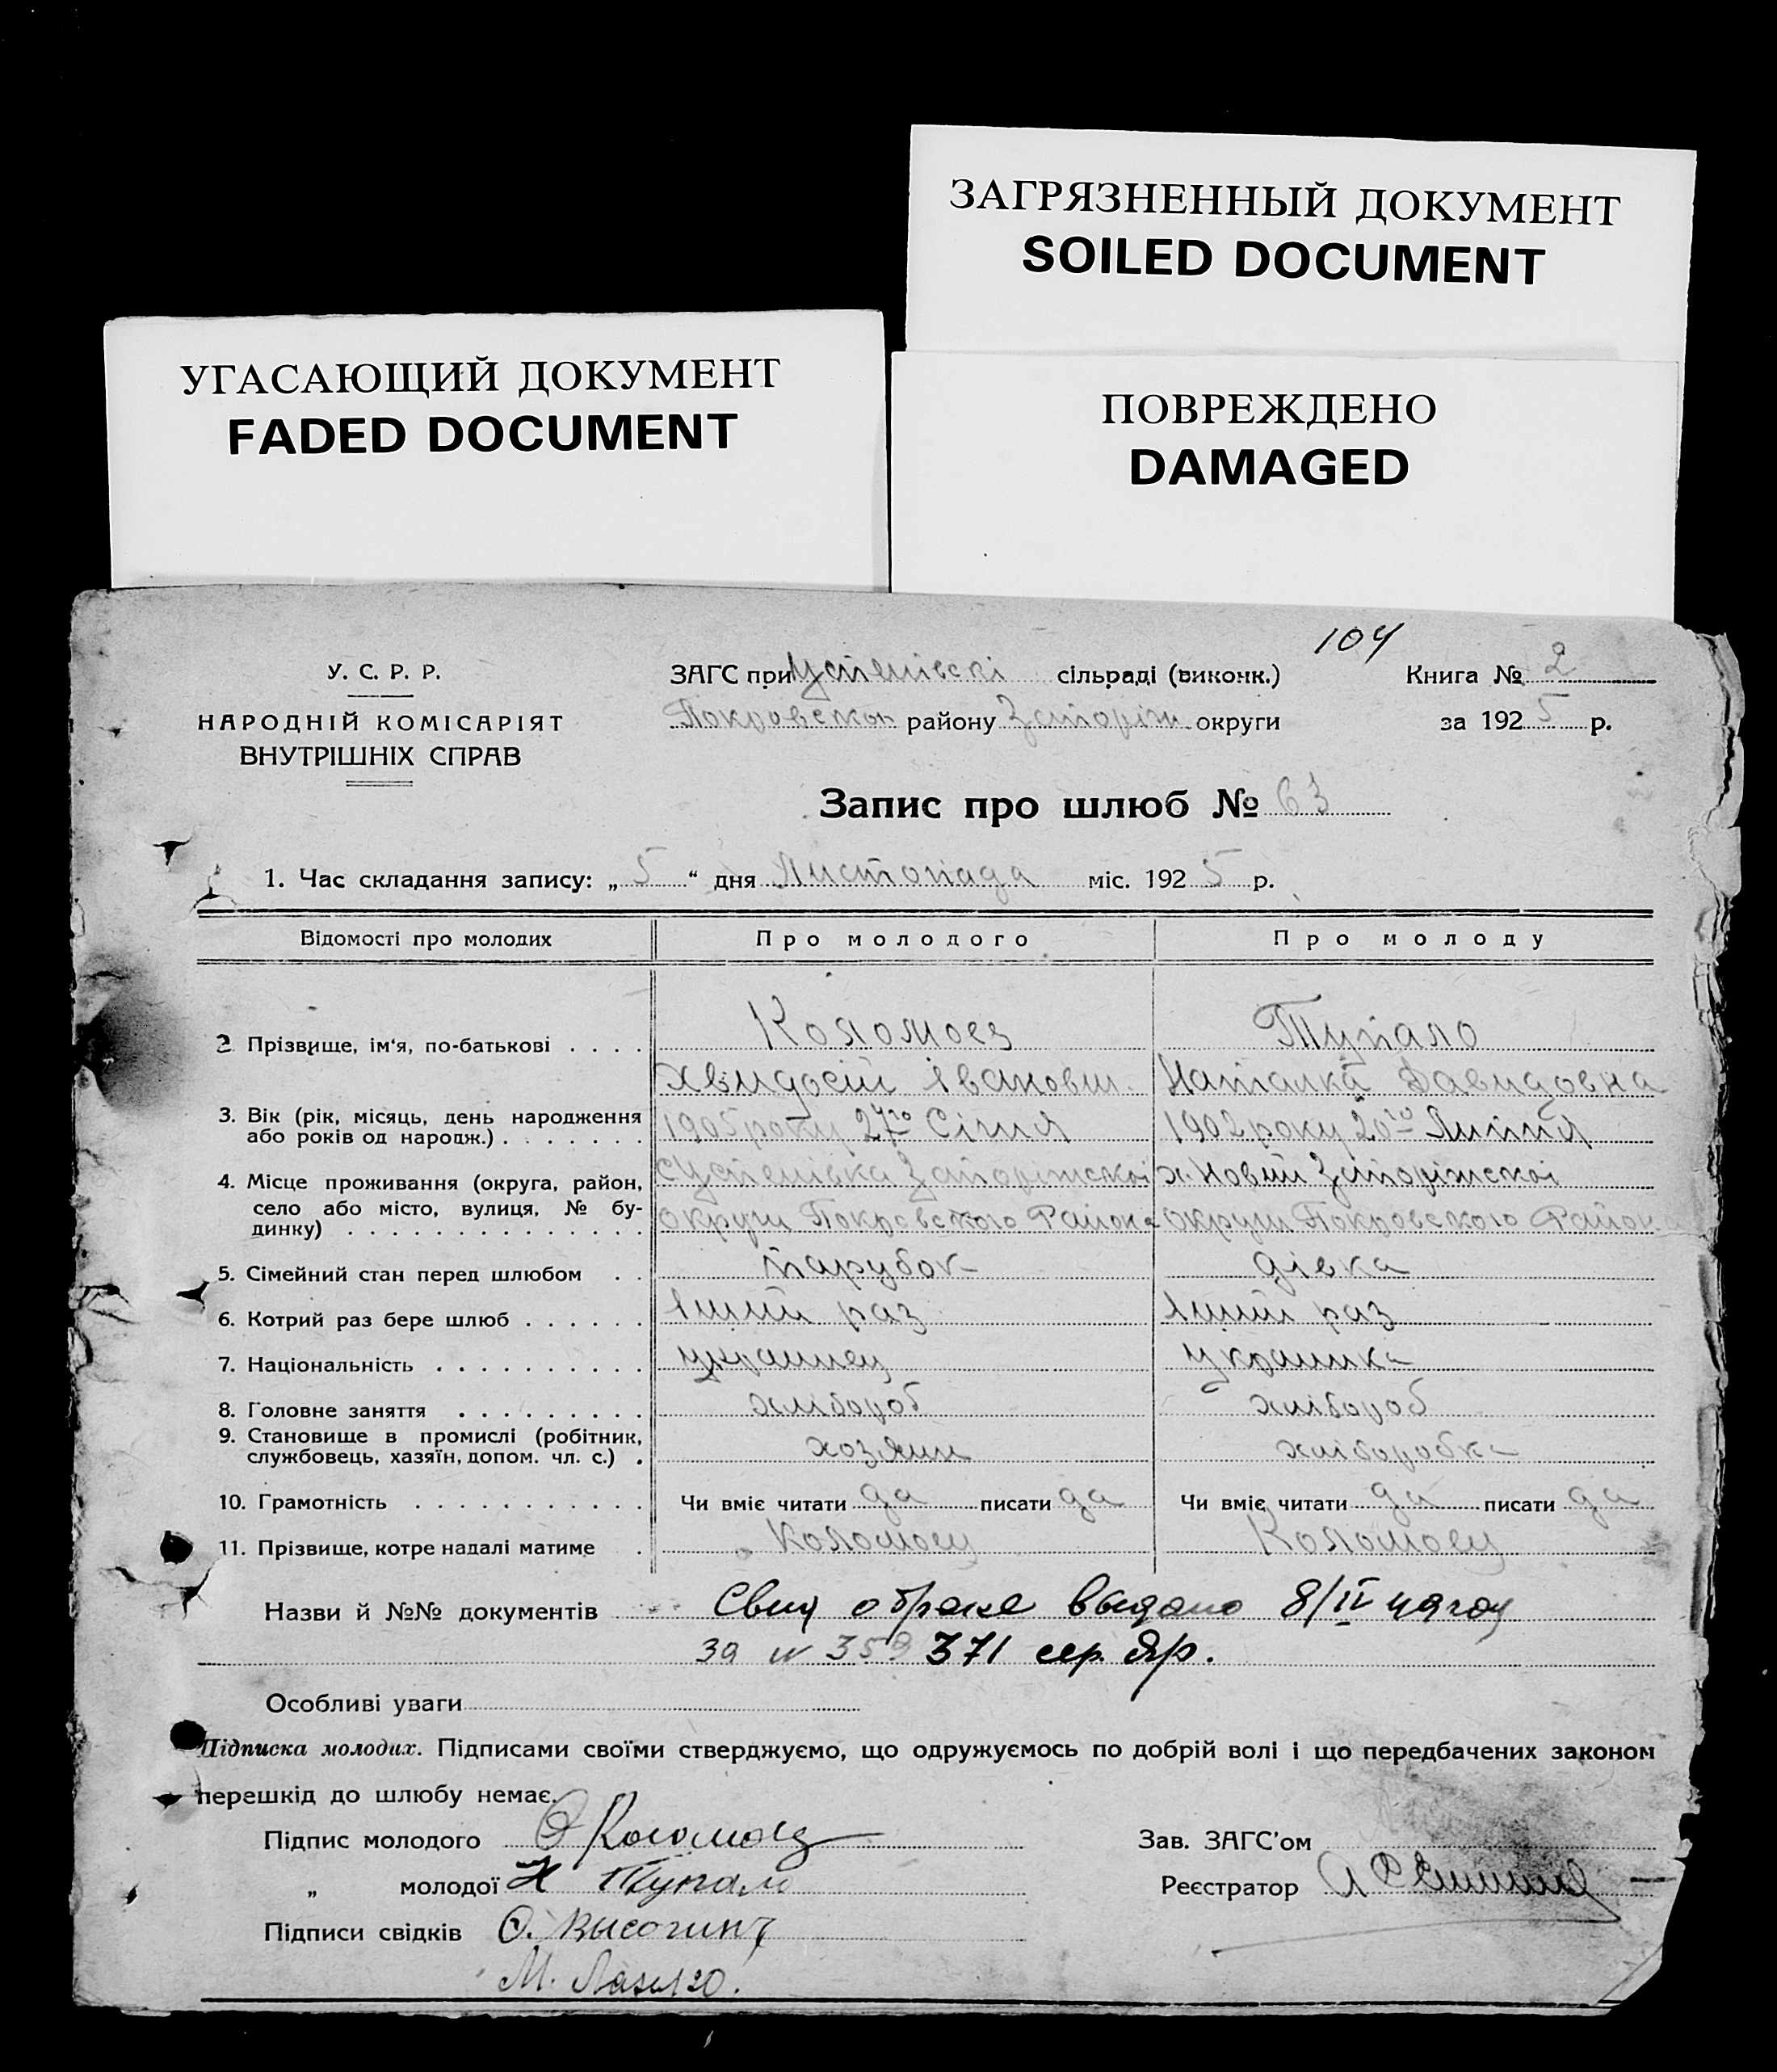 ЗАГРЯЗНЕННЫЙ ДОКУМЕНТ
SOILED DOCUMENT
УГАСАЮЩИЙ ДОКУМЕНТ
FADED DOCUMENT
ПОВРЕЖДЕНО
DAMAGED
104
У. С. Р. Р.
НАРОДНІЙ КОМІСАРІЯТ
ВНУТРІШНІХ СПРАВ
ЗАГС при Успенівскі сільраді (виконк.)
Покровского району Запоріж. округи
Книга № 2
за 1925 р.
Запис про шлюб № 63
1. Час складання запису: „ 5 “ дня Листопада міс. 1925 р.
Відомості про молодих Про молодого Про молоду
2 Прізвище, ім'я, по-батькові . . . . Коломоец Тупало
Хвидосій Івановш. Наталка Давидовна
3. Вік (рік, місяць, день народження
або років од народж.) . . . . . . . 1905 року 27го Січня 1902 року 20го Липня
4. Місце проживання (округа, район, с Успенівка Запоріжскоі х. Новий Запоріжскоі
село або місто, вулиця, № бу-
динку) . . . . . . . . . . . . . . округи Покровского Района округи Покровского Района
5. Сімейний стан перед шлюбом . . парубок дівка
6. Котрий раз бере шлюб . . . . . . 1ший раз 1ший раз
7. Національність . . . . . . . . . . украинец украинка
8. Головне заняття . . . . . . . . . хлібороб хлібороб
9. Становище в промислі (робітник,
службовець, хазяїн, допом. чл. с.) . хозяин хліборобка
10. Грамотність . . . . . . . . . . . Чи вміє читати да писати да Чи вміє читати да писати да
11. Прізвище, котре надалі матиме . Коломоец Коломоец
Назви й №№ документів Свид о браке выдано 8/IV
за № 359 371 сер. яр.
Особливі уваги
Підписка молодих. Підписами своїми стверджуємо, що одружуємось по добрій волі і що передбачених законом
перешкід до шлюбу немає.
Підпис молодого Ф Коломоец Зав. ЗАГС'ом
„ молодої Н Тупало Реєстратор
Підписи свідків
М.